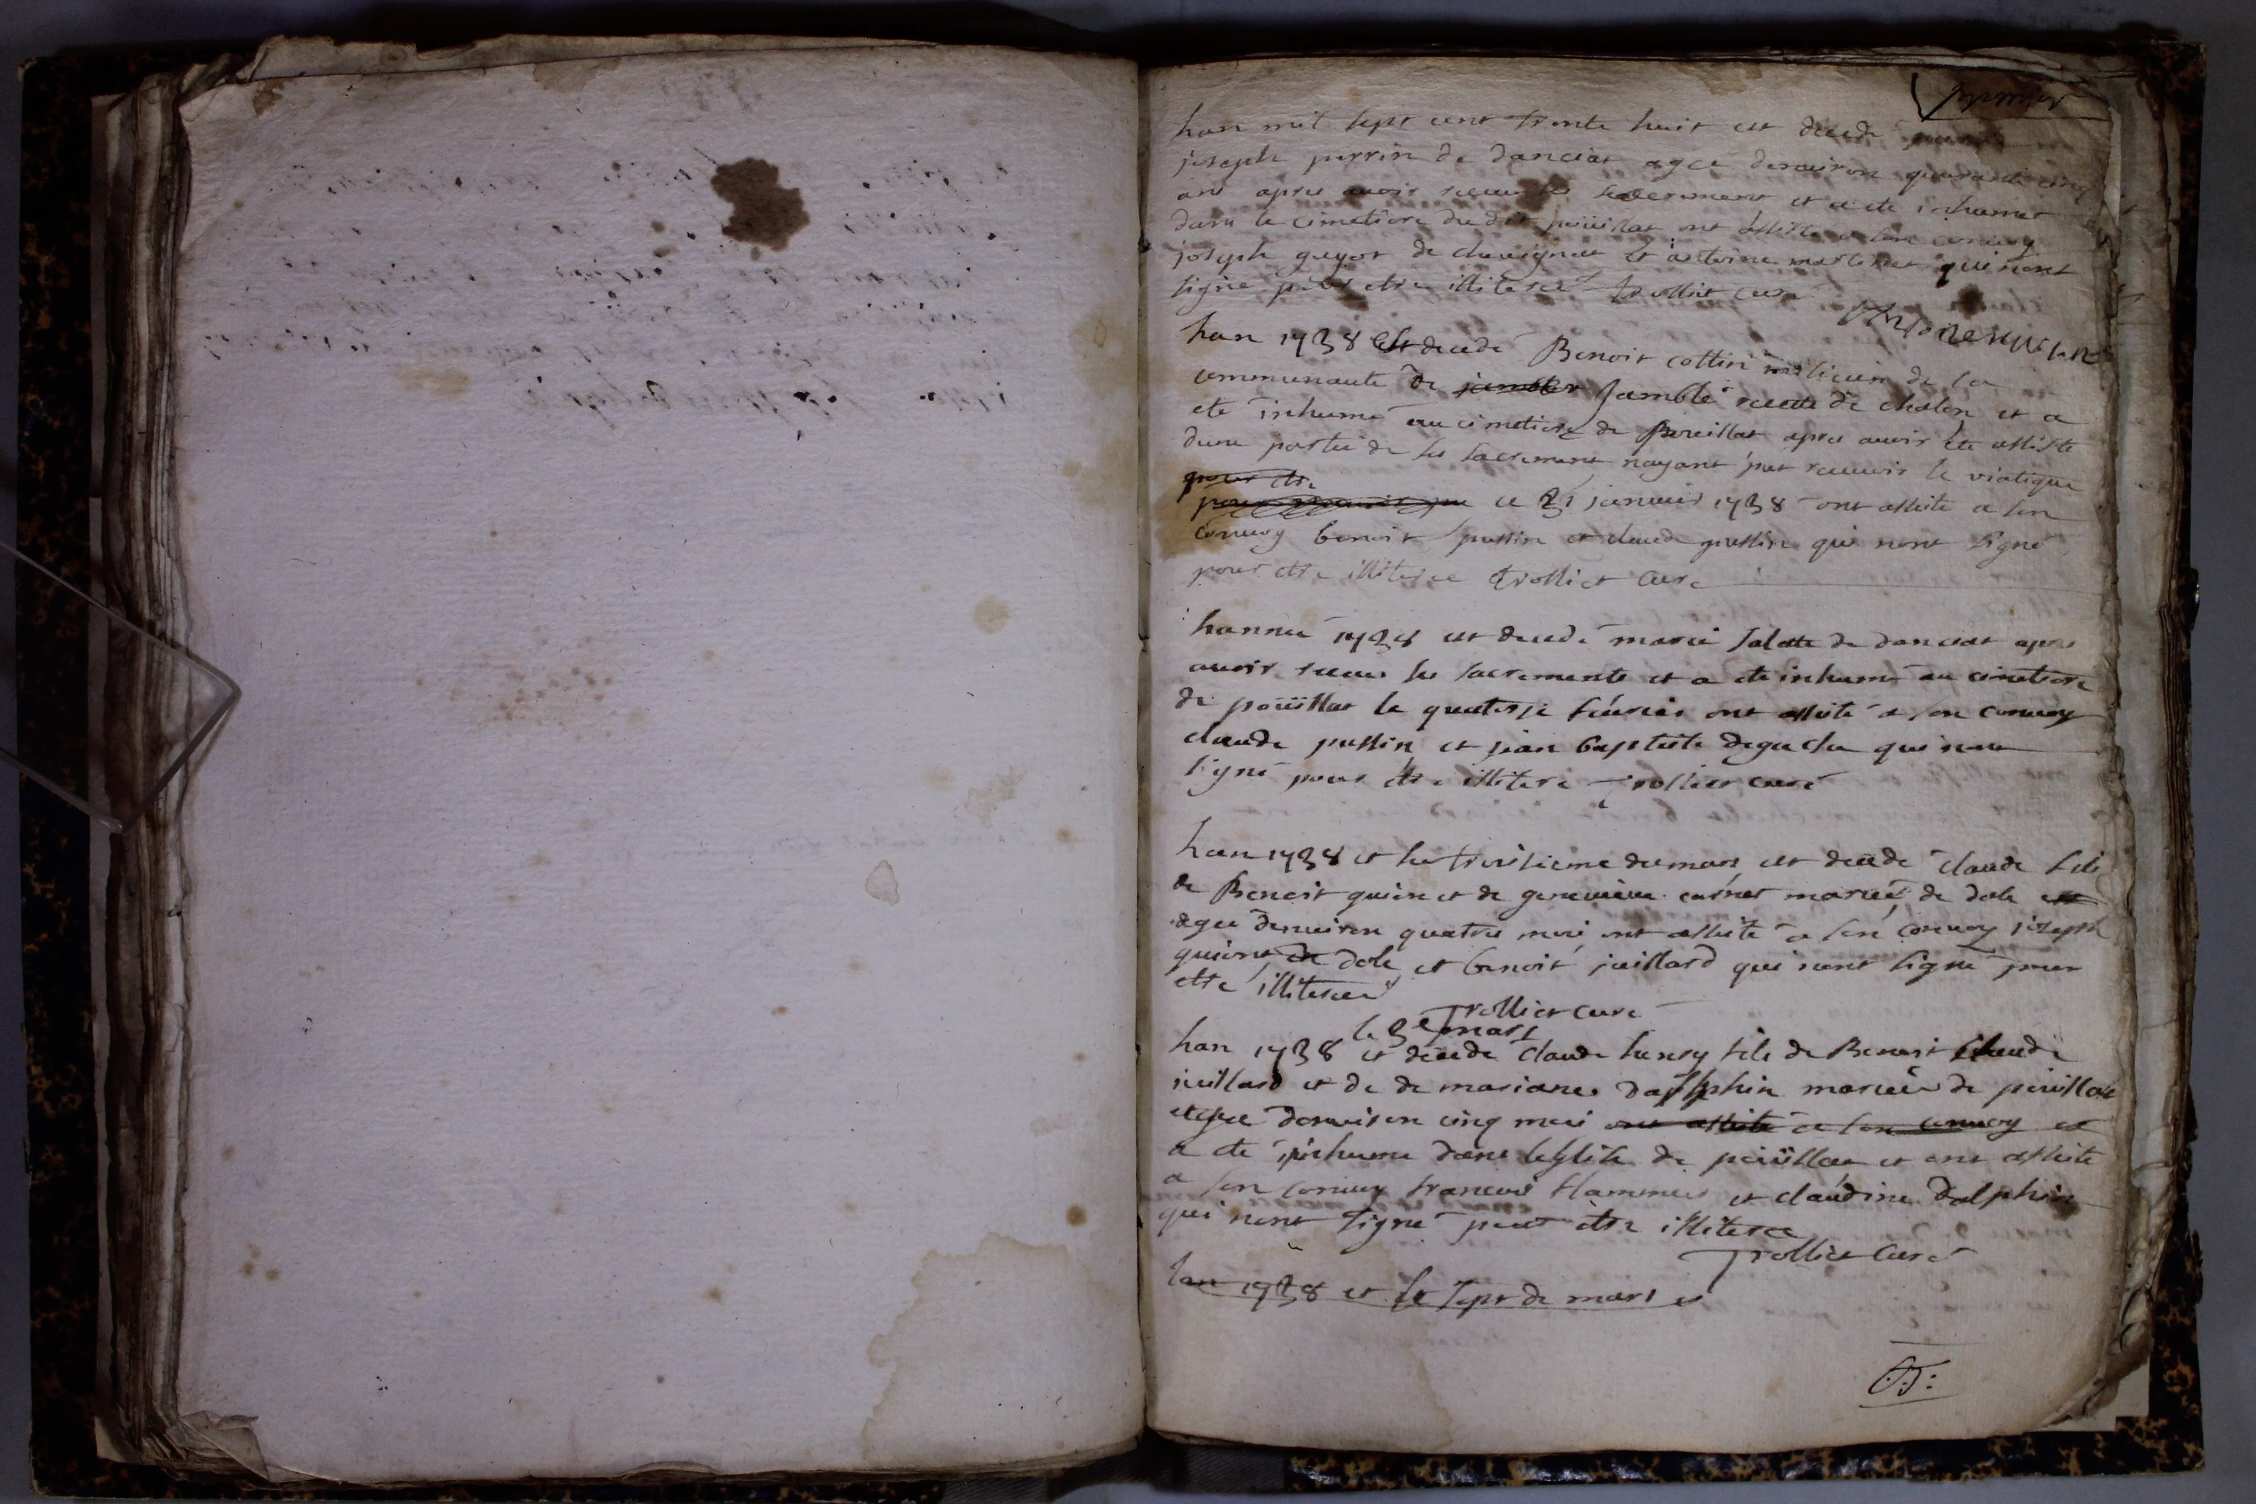 premier
lan mil sept cent trente huit est decedé
joseph perrin de danciat agée denuiron quarante cinq
ans apres auoir receu les sacrement et a été inhumet
dans le cimetiere du dit poüillat ont assisté a son conuoy
joseph guyot de cheuignat et antoine martinet qui nont
signé pour etre illiteré trolliet curé
lan 1738 est decedé Benoit cottin milicien de la
communauté de jambles Jamble de chalon et a
eté inhumé au cimetiere de Poüillat apres auoir été assisté
dune partie de ses sacrement nayant put receuoir le viatique
pour etre
ce 21 januier 1738 ont assisté a son
conuoy benoit pussin et claude pussin qui nont signé
pour etre illiteree trolliet Curé
lannee 1738 est decedé marie Jalotte de danciat apres
auoir receu les sacrements et a eté inhumé au cimetiere
de poüillat le quatorse féurier ont assisté a son conuoy
claude pussin et jean baptiste qui nont
signé pour etre illiteré trolliet curé
lan 1738 et le troisieme du mars est decedé claude fils
de Benoit guionet de geneuieue mariée de dole
agee denuiron quatre moi ont assisté a son conuoy joseph
de dole et benoit juillard qui nont signé pour
etre illiteree
Trolliet curé
le 3e mars
lan 1738 et decede claude henry fils de Benoit claude
juillard et de de mariane dalphin mariée de poüillat
agée denuiron cinq moi ont assisté a son conuoy et
a été inhume dans leglise de poüillat et ont assisté
a son conuoy francois et claudine dalphin
qui nont signé pour etre illiteree
Trolliet Curé
lan 1738 et le sept de mars es